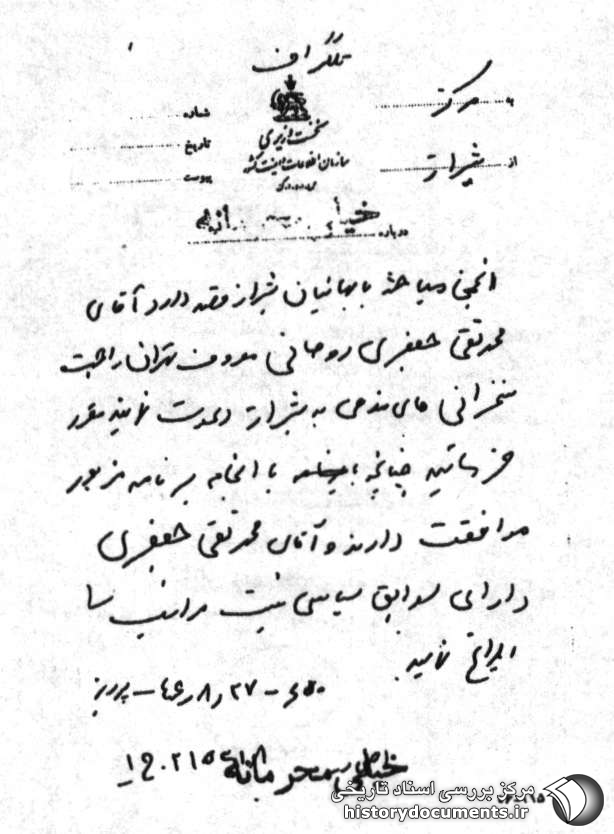 تلگراف
به مرکز
نخست وزیری
سازمان اطلاعات و امنیت کشور
س.ا.و.ا.ک
از شیراز
شماره
تاریخ
پیوست
درباره
انجمن مباحثه با بهائیان شیراز قصد دارد آقای
محمدتقی جعفری روحانی معروف تهران را جهت
سخنرانی های مذهبی به شیراز دعوت نمایند مقرر
فرمائید چنانچه با انجام برنامه مزبور
موافقت دارند و آقای محمدتقی جعفری
دارای سوابق سیاسی نیست مراتب را
ابلاغ نمایند
۲۷ر۸ر۴۶ -
خیلی محرمانه
مرکز بررسی اسناد تاریخی
historydocuments.ir